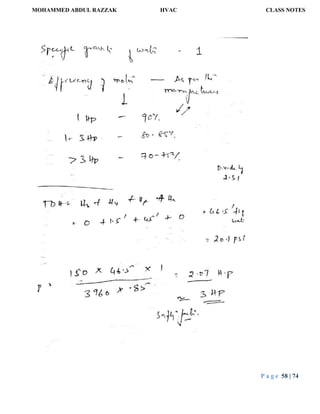 MOHAMMED ABDUL RAZZAK HVAC CLASS NOTES
Specific gravity of water - 1
Efficiency of motor — As per the
manufacturer
1 HP - 90%
1- 3 HP - 80-85%
>3 HP - 70-75%
Divide by
2.31
TDH = Hs + Hv + Hp + Hs
= 0 + 1.5' + 45' + 0 = 46.5'
= 20.1 psi
150 X 46.5 X 1
3960 X .85
= 2.07 H.P
≈ 3 HP
P a g e 58 | 74